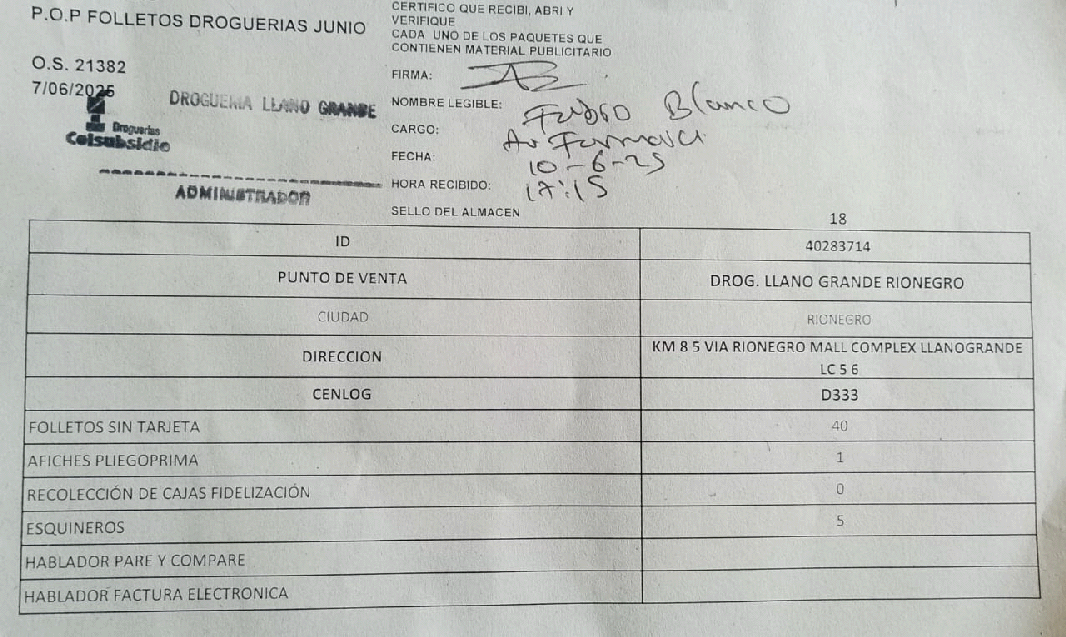 P.O.P FOLLETOS DROGUERIAS JUNIO
O.S. 21382
7/06/2025
DROGUERIA LLANO GRANDE
Droguerías
Colsubsidio
ADMINISTRADOR
CERTIFICO QUE RECIBI, ABRI Y
VERIFIQUE
CADA UNO DE LOS PAQUETES QUE
CONTIENEN MATERIAL PUBLICITARIO
FIRMA:
NOMBRE LEGIBLE: Blanco
CARGO:
FECHA: 10-6-25
HORA RECIBIDO: 17:15
SELLO DEL ALMACEN
18
ID 40283714
PUNTO DE VENTA DROG. LLANO GRANDE RIONEGRO
CIUDAD RIONEGRO
DIRECCION KM 8 5 VIA RIONEGRO MALL COMPLEX LLANOGRANDE
LC 5 6
CENLOG D333
FOLLETOS SIN TARJETA 40
AFICHES PLIEGOPRIMA 1
RECOLECCIÓN DE CAJAS FIDELIZACIÓN 0
ESQUINEROS 5
HABLADOR PARE Y COMPARE
HABLADOR FACTURA ELECTRONICA